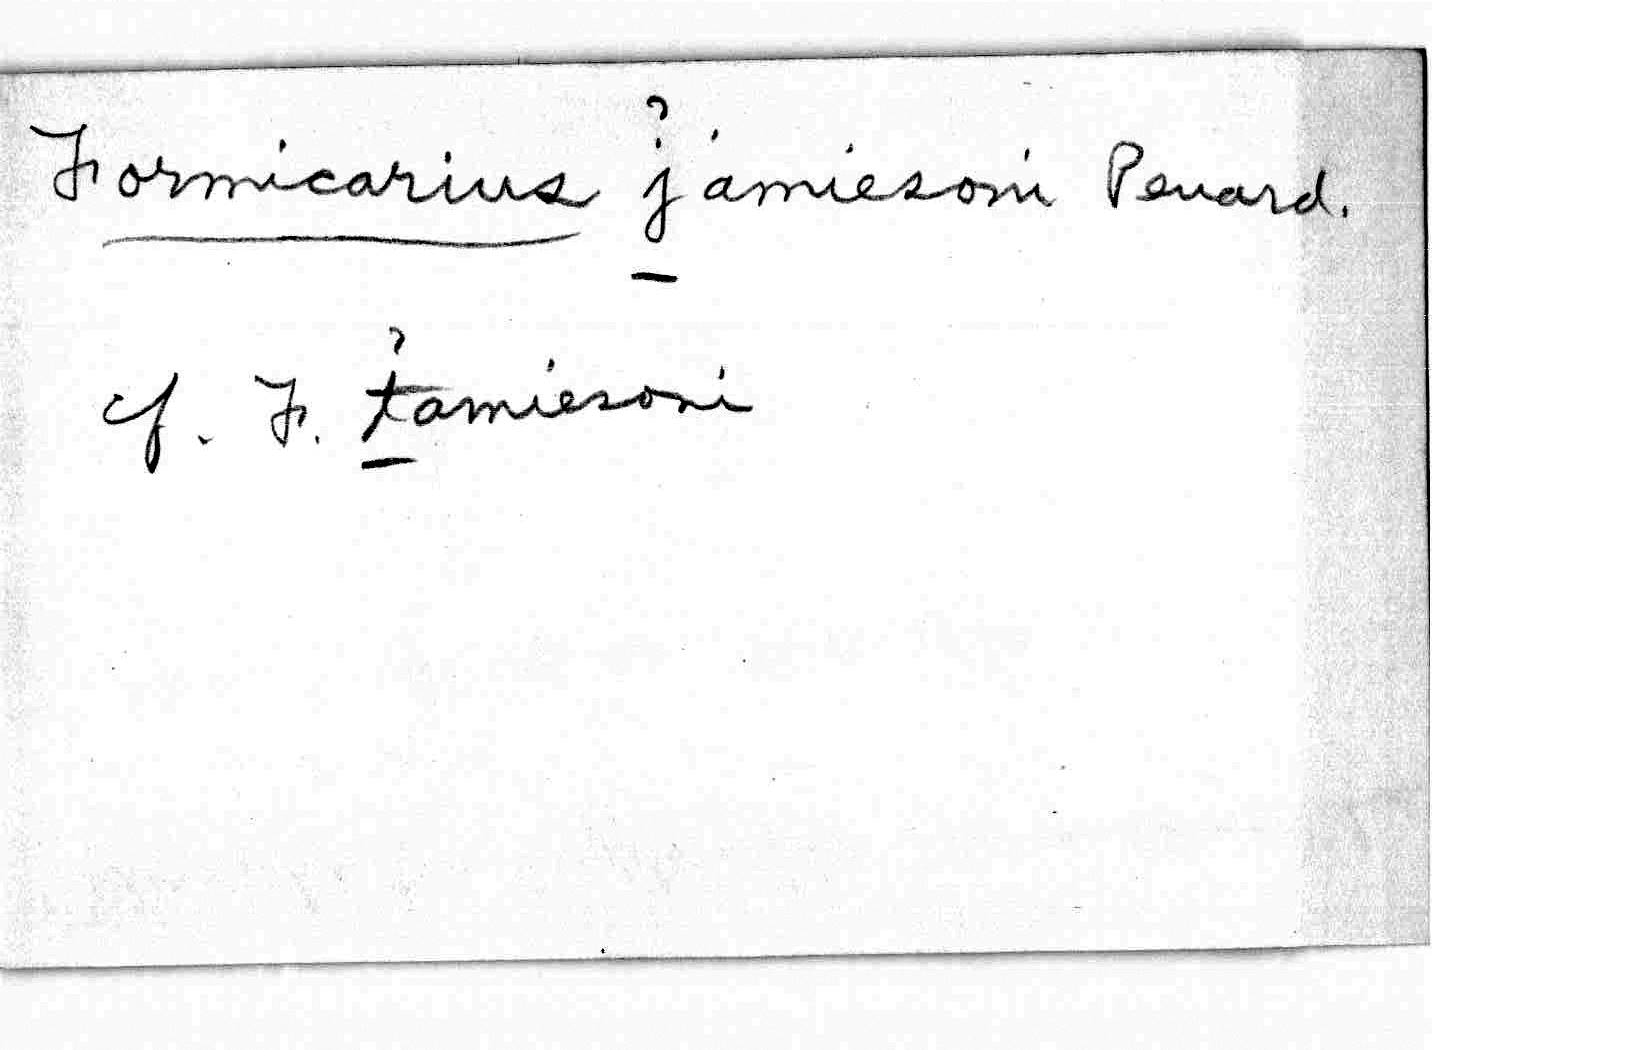 ?
Formicarius jamiesoni Penard.
?
cf. F. tamiesoni